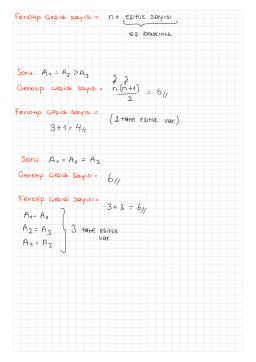 Fenotip çeşidi sayısı = n + eşitlik sayısı
eş baskınlık
Soru: A₁ = A₂ > A₃
Genotip çeşidi sayısı = n(n+1)/2 = 6//
3 3
Fenotip çeşidi sayısı = (1 tane eşitlik var)
3+1=4//
Soru: A₁ = A₂ = A₃
Genotip çeşidi sayısı = 6//
Fenotip çeşidi sayısı =
3+3 = 6//
A₁ = A₂
A₂ = A₃ 3 tane eşitlik
A₁ = A₃ var.